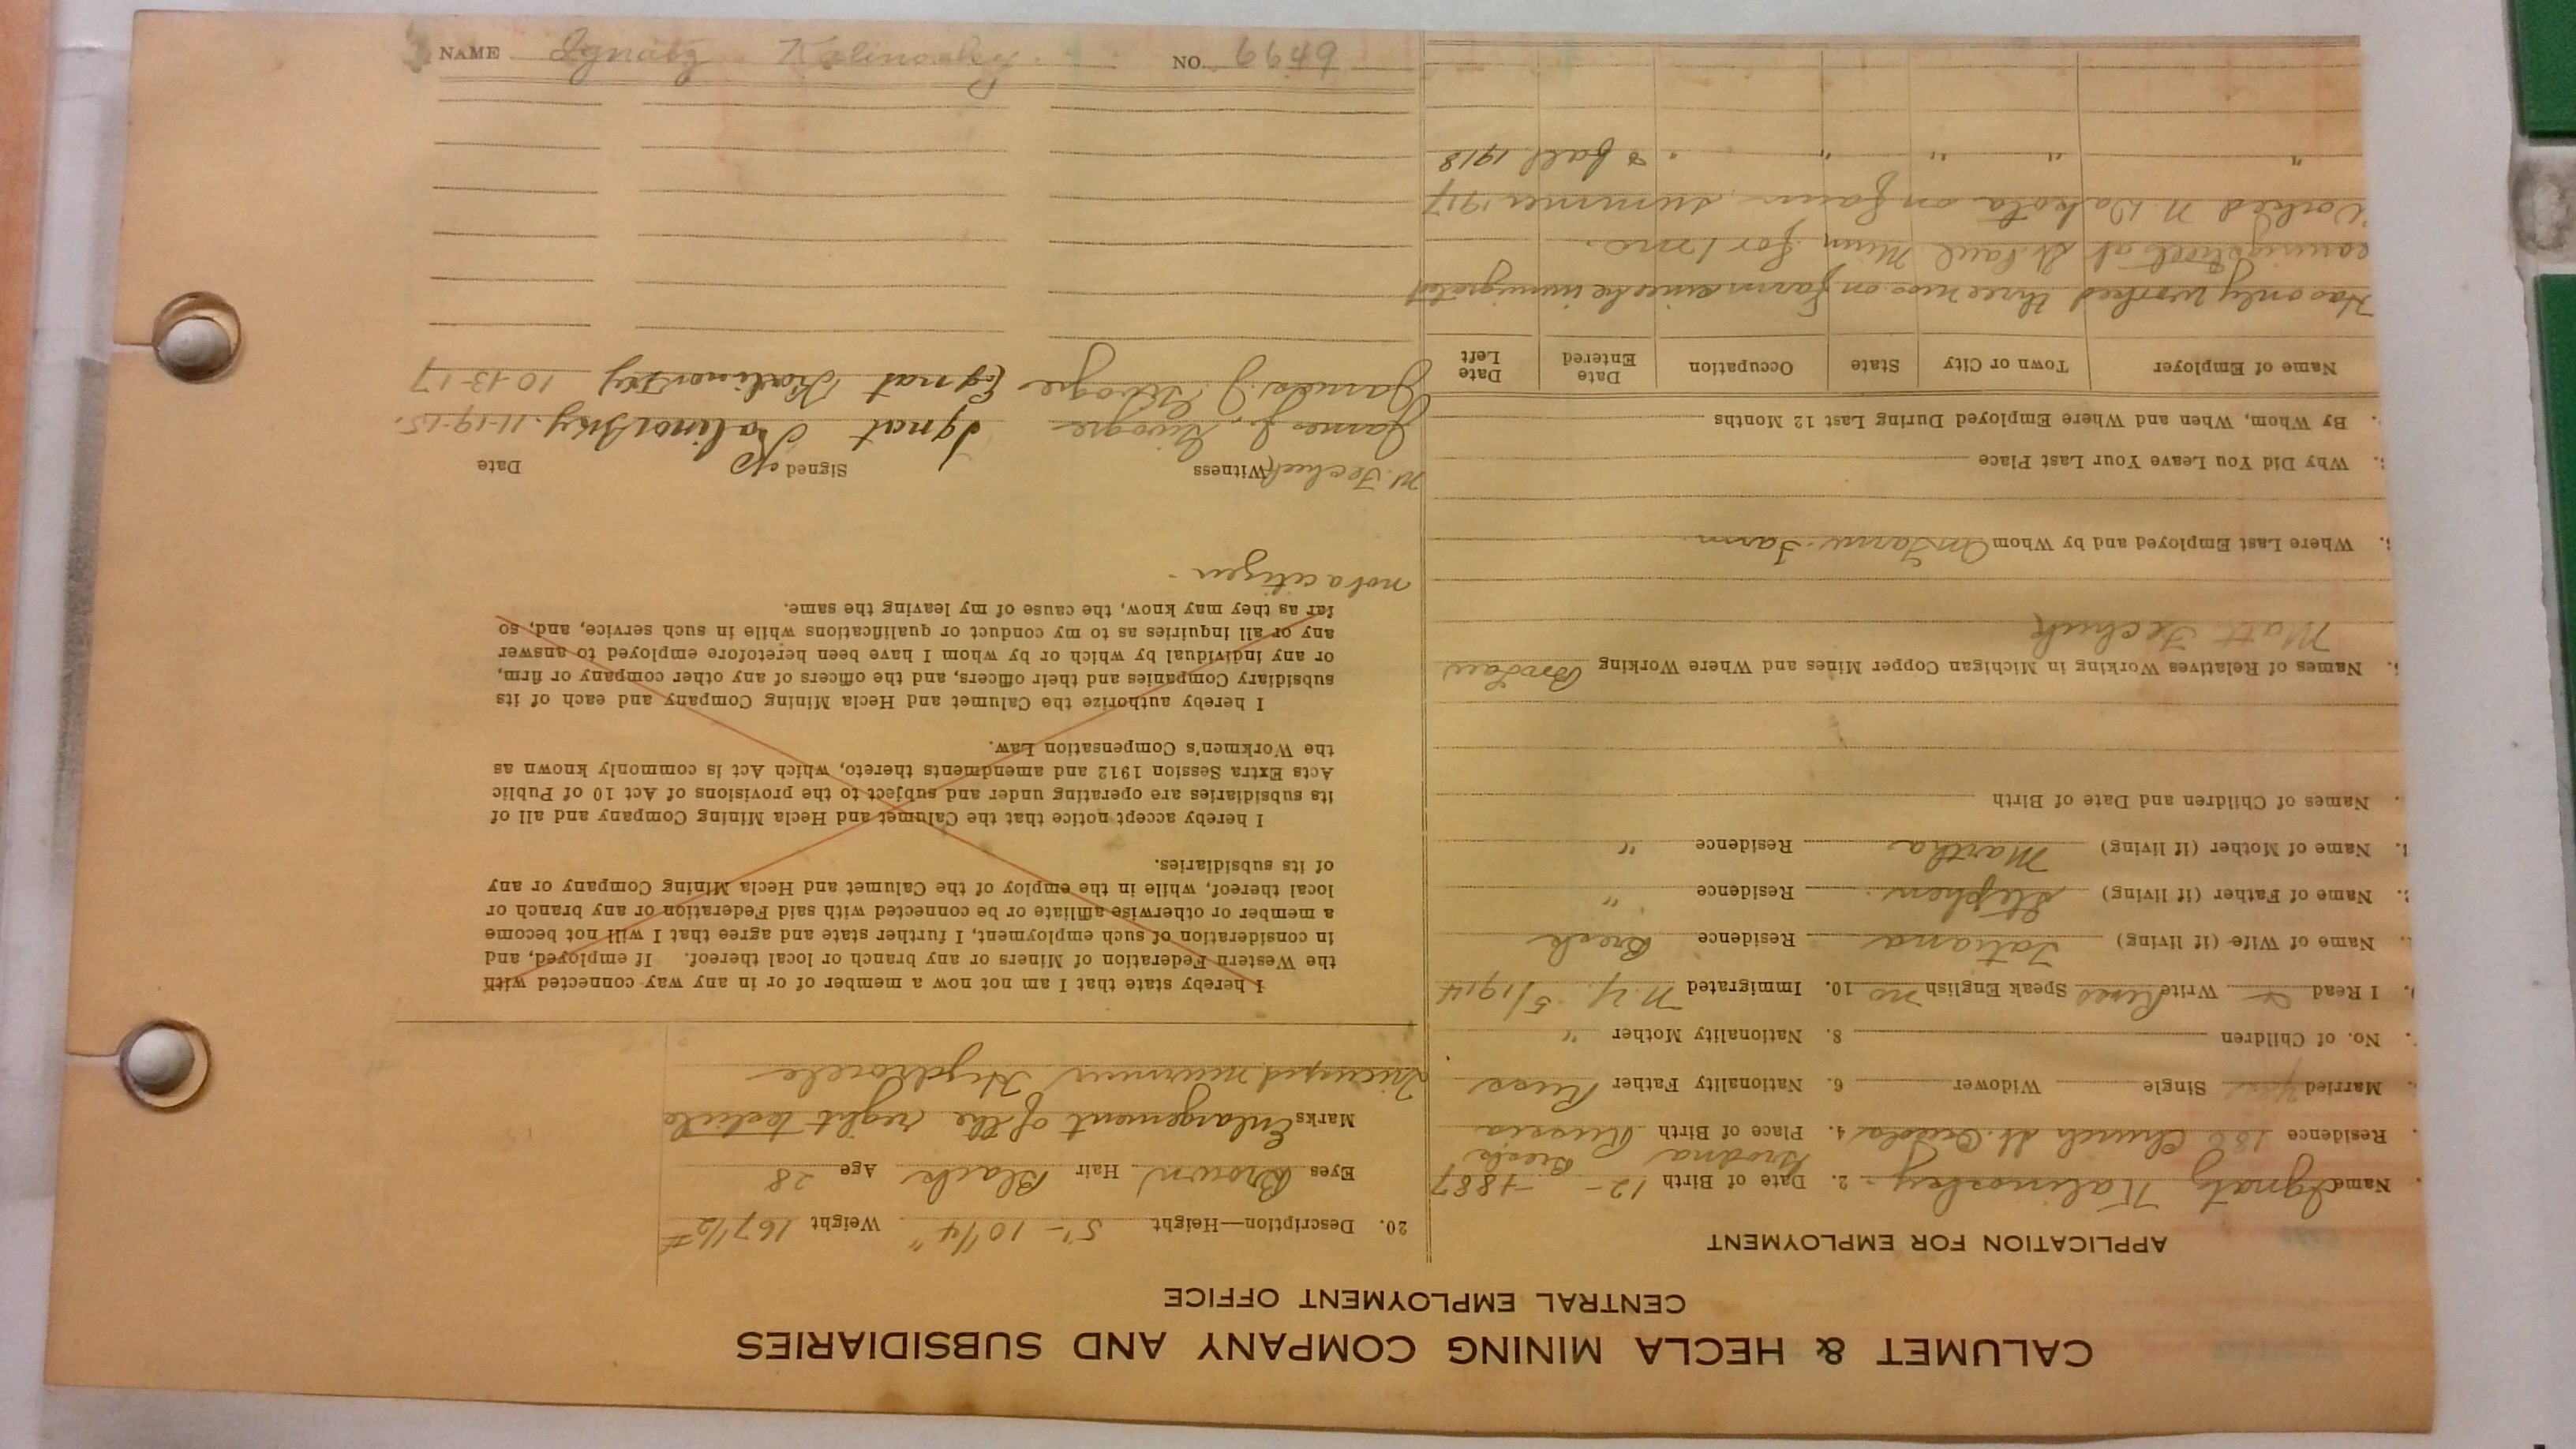 CALUMET & HECLA MINING COMPANY AND SUBSIDIARIES
CENTRAL EMPLOYMENT OFFICE
APPLICATION FOR EMPLOYMENT
Name Ignatz Kalinosky 2. Date of Birth 12 - - 1887
Residence 188 Church St. 4. Place of Birth Russia
Married Yes Single Widower 6. Nationality Father Russ
No. of Children 8. Nationality Mother "
I Read & Write Russ Speak English no 10. Immigrated N.Y. 5/1914
Name of Wife (if living) Tatiana Residence
Name of Father (if living) Stephen Residence "
Name of Mother (if living) Martha Residence "
Names of Children and Date of Birth
Names of Relatives Working in Michigan Copper Mines and Where Working
Matt
Where Last Employed and by Whom On Farm. Farm
Why Did You Leave Your Last Place
By Whom, When and Where Employed During Last 12 Months
Name of Employer Town or City State Occupation Date Entered Date Left
Has only worked three mos on farm since he immigrated
at St. Paul Minn for 1 mo.
Worked N. Dakota on farm summer 1917
" " " " " & fall 1918
20. Description—Height 5' - 10 1/4" Weight 167 1/2 #
Eyes Brown Hair Black Age 28
Marks Enlargement of the right testicle
Tricuspid murmur Hydrocele
I hereby state that I am not now a member of or in any way connected with
the Western Federation of Miners or any branch or local thereof. If employed, and
in consideration of such employment, I further state and agree that I will not become
a member or otherwise affiliate or be connected with said Federation or any branch or
local thereof, while in the employ of the Calumet and Hecla Mining Company or any
of its subsidiaries.
I hereby accept notice that the Calumet and Hecla Mining Company and all of
its subsidiaries are operating under and subject to the provisions of Act 10 of Public
Acts Extra Session 1912 and amendments thereto, which Act is commonly known as
the Workmen's Compensation Law.
I hereby authorize the Calumet and Hecla Mining Company and each of its
subsidiary Companies and their officers, and the officers of any other company or firm,
or any individual by which or by whom I have been heretofore employed to answer
any or all inquiries as to my conduct or qualifications while in such service, and, so
far as they may know, the cause of my leaving the same.
not a citizen -
Witness Signed Date
James J. Ignat Kalinovsky 11-19-15.
James J. Ignat Kalinovsky 10-13-17
NAME Ignatz Kalinosky. NO. 6649